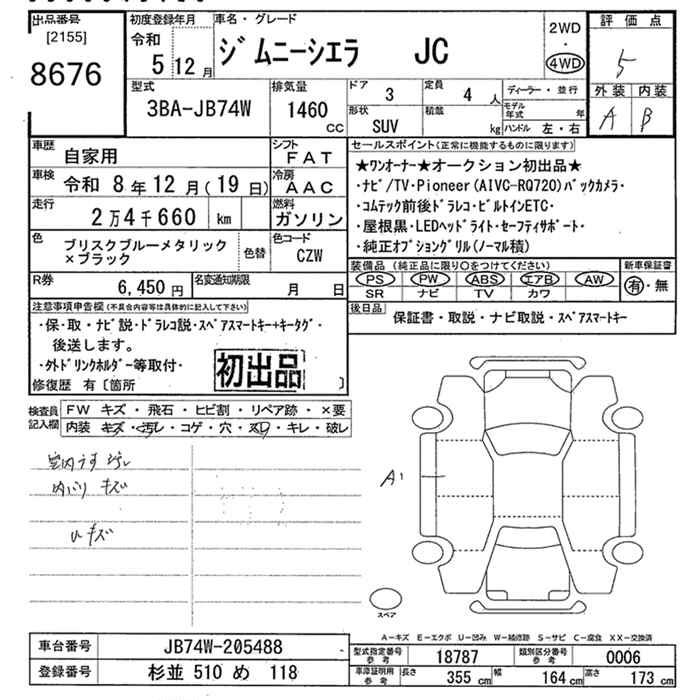 出品番号
[2155]
8676
初度登録年月
令和
5 12 月
車名・グレード
ジムニーシエラ JC
2WD
・
4WD
評価点
5
外装 内装
A B
型式
3BA-JB74W
排気量
1460
CC
ドア 3
定員 4 人
形状 SUV
積載 kg
ディーラー・並行
モデル年式 年
ハンドル 左・右
車歴 自家用
シフト FAT
車検 令和 8年12月(19日)
冷房 AAC
走行 2万4千660 km
燃料 ガソリン
色 ブリスクブルーメタリック
×ブラック
色替
色コード CZW
R券 6,450円
名変通知期限 月 日
セールスポイント(正常に機能するものに限ります)
★ワンオーナー★オークション初出品★
・ナビ/TV・Pioneer(AIVC-RQ720)バックカメラ・
・コムテック前後ドラレコ・ビルトインETC・
・屋根黒・LEDヘッドライト・セーフティサポート・
・純正オプショングリル(ノーマル積)
装備品(純正品に限り○をつけてください)
PS PW ABS エアB AW
SR ナビ TV カワ
新車保証書
有・無
後日品 保証書・取説・ナビ取説・スペアスマートキー
注意事項申告欄(不具合内容等は具体的に記入して下さい)
・保・取・ナビ説・ドラレコ説・スペアスマートキー+キータグ・
後送します。
・外ドリンクホルダー等取付・
修復歴 有〔箇所 〕
初出品
検査員
記入欄
FW キズ・飛石・ヒビ割・リペア跡・×要
内装 キズ・汚レ・コゲ・穴・スレ・キレ・破レ
室内ウス汚レ
内バリキズ
Uキズ
A1
スペア
A-キズ E-エクボ U-凹み W-補修跡 S-サビ C-腐食 XX-交換済
車台番号 JB74W-205488
登録番号 杉並 510 め 118
型式指定番号
参考
18787
類別区分番号
参考
0006
車庫証明用
参考
長さ 355 cm 幅 164 cm 高さ 173 cm